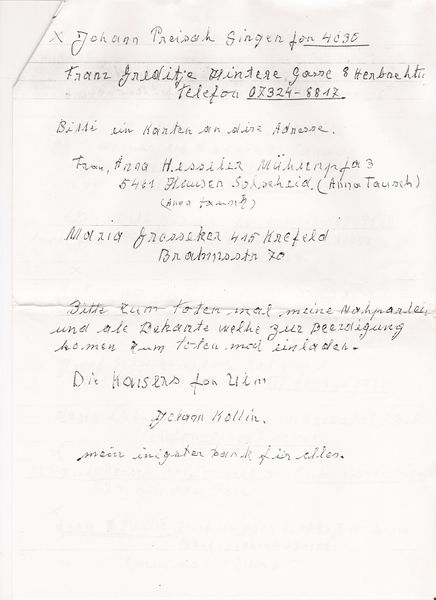 X Johann Preisach Singen fon 4635
Franz Greditje Hintere Gasse 8 Herbrechti
Telefon 07324-8817.
Bitte ein Karten an dise Adresse.
Frau, Anna Hesseler Mühlenpfa 3
5461 Hausen (Anna Tausch)
(Anna Tausch)
Maria Grosseker 415 Krefeld
Brahmsstr 70
Bitte zum toten mal meine Nahparteien
und ale Bekante welhe zur Beerdigung
komen zum toten mal einladen.
Die Kaisers fon Ulm
Johann Kollin.
mein inigster Dank für alles.